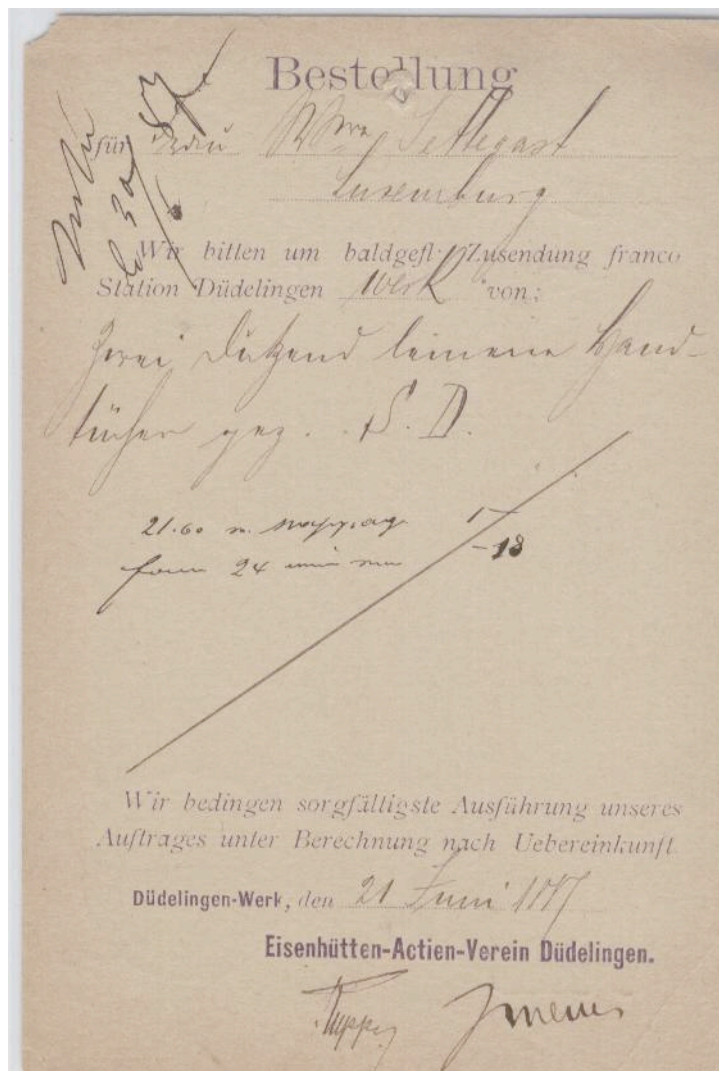 Bestellung
für Frau Wwe Settegast
Luxemburg
Wir bitten um baldgefl. Zusendung franco
Station Düdelingen Werk von:
Zwei Dutzend leinene Hand-
tücher gez. S. D.
21.60
24
1
18
Wir bedingen sorgfältigste Ausführung unseres
Auftrages unter Berechnung nach Uebereinkunft
Düdelingen-Werk, den 21 Juni
Eisenhütten-Actien-Verein Düdelingen.